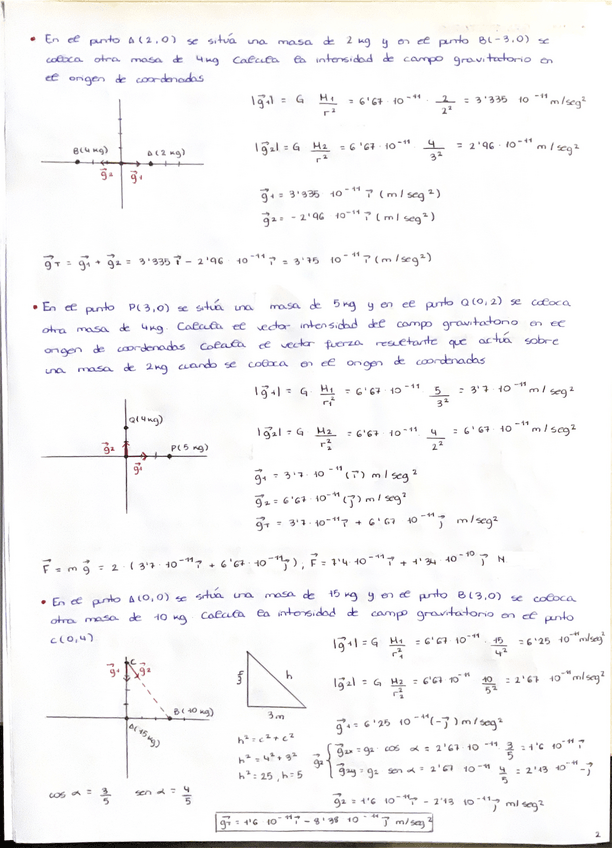 • En el punto A(2,0) se sitúa una masa de 2 kg y en el punto B(-3,0) se
coloca otra masa de 4kg Calcula la intensidad de campo gravitatorio en
el origen de coordenadas
|g⃗1| = G M1/r² = 6'67 · 10⁻¹¹ · 2/2² = 3'335 10⁻¹¹ m/seg²
B(4kg) A(2kg)
g⃗2 g⃗1
|g⃗2| = G M2/r² = 6'67 · 10⁻¹¹ 4/3² = 2'96 · 10⁻¹¹ m/seg²
g⃗1 = 3'335 10⁻¹¹ i⃗ (m/seg²)
g⃗2 = -2'96 10⁻¹¹ i⃗ (m/seg²)
g⃗T = g⃗1 + g⃗2 = 3'335 i⃗ - 2'96 · 10⁻¹¹ i⃗ = 3'75 10⁻¹¹ i⃗ (m/seg²)
• En el punto P(3,0) se sitúa una masa de 5kg y en el punto Q(0,2) se coloca
otra masa de 4kg. Calcula el vector intensidad del campo gravitatorio en el
origen de coordenadas Calcula el vector fuerza resultante que actúa sobre
una masa de 2kg cuando se coloca en el origen de coordenadas
|g⃗1| = G M1/r1² = 6'67 · 10⁻¹¹ 5/3² = 3'7 · 10⁻¹¹ m/seg²
Q(4kg)
|g⃗2| = G M2/r2² = 6'67 · 10⁻¹¹ 4/2² = 6'67 · 10⁻¹¹ m/seg²
g⃗2 P(5kg)
g⃗1
g⃗1 = 3'7 · 10⁻¹¹ (i⃗) m/seg²
g⃗2 = 6'67 · 10⁻¹¹ (j⃗) m/seg²
g⃗T = 3'7 · 10⁻¹¹ i⃗ + 6'67 · 10⁻¹¹ j⃗ m/seg²
F⃗ = m g⃗ = 2 · (3'7 · 10⁻¹¹ i⃗ + 6'67 · 10⁻¹¹ j⃗), F⃗ = 7'4 · 10⁻¹¹ i⃗ + 1'34 · 10⁻¹⁰ j⃗ N
• En el punto A(0,0) se sitúa una masa de 15 kg y en el punto B(3,0) se coloca
otra masa de 10 kg Calcula la intensidad de campo gravitatorio en el punto
C(0,4)
|g⃗1| = G M1/r1² = 6'67 10⁻¹¹ · 15/4² = 6'25 10⁻¹¹ m/seg²
C
g⃗1 g⃗2
h
|g⃗2| = G M2/r2² = 6'67 10⁻¹¹ 10/5² = 2'67 · 10⁻¹¹ m/seg²
B(10kg)
A(15kg)
3m
g⃗1 = 6'25 10⁻¹¹ (-j⃗) m/seg²
h² = c² + c²
h² = 4² + 3²
h² = 25, h = 5
g⃗2 { g⃗2x = g2 cos α = 2'67 · 10⁻¹¹ 3/5 = 1'6 10⁻¹¹ i⃗
g⃗2y = g2 sen α = 2'67 · 10⁻¹¹ 4/5 = 2'13 10⁻¹¹ -j⃗
cos α = 3/5 sen α = 4/5
g⃗2 = 1'6 10⁻¹¹ i⃗ - 2'13 · 10⁻¹¹ j⃗ m/seg²
g⃗T = 1'6 10⁻¹¹ i⃗ - 8'38 10⁻¹¹ j⃗ m/seg²
2